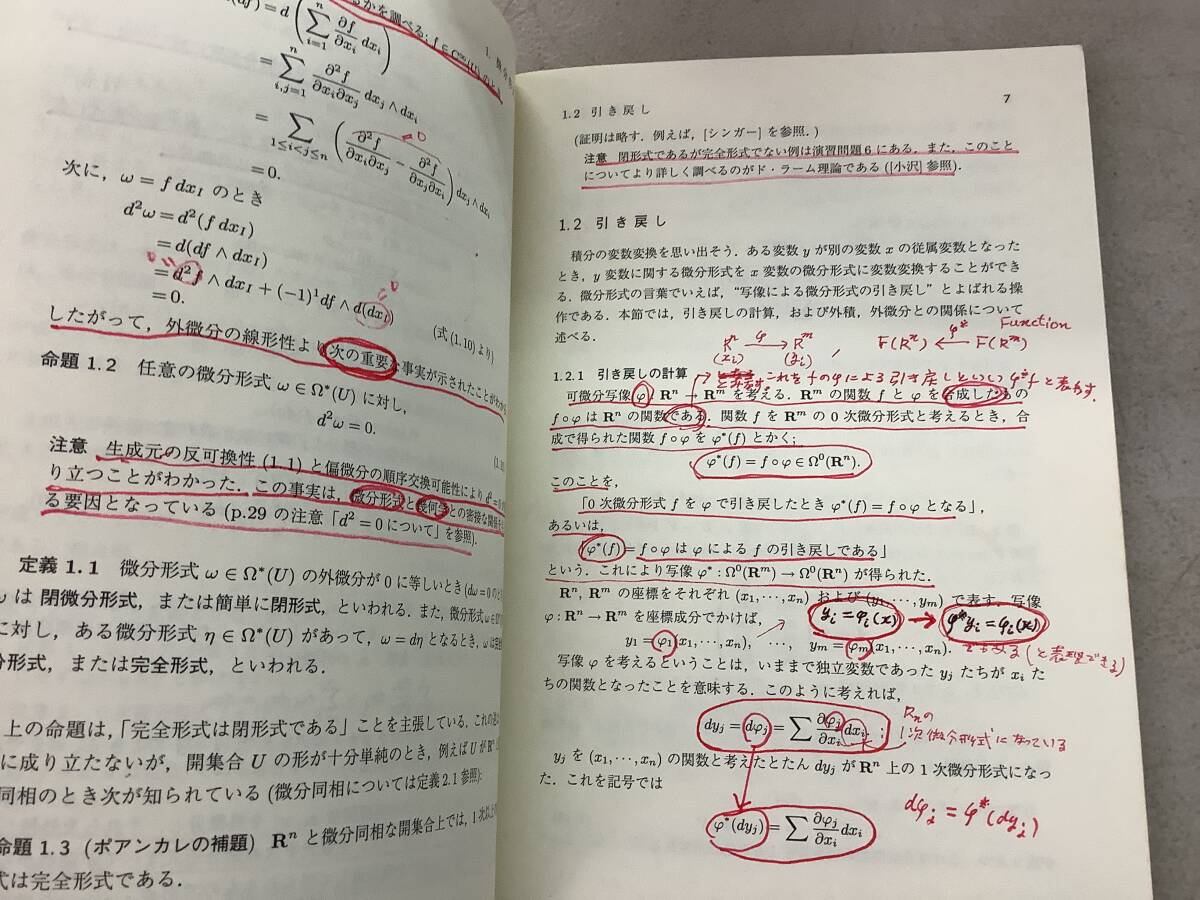 るかを調べる: f ∈ C∞(U) のとき
(df) = d(∑_{i=1}^{n} ∂f/∂x_i dx_i)
= ∑_{i,j=1}^{n} ∂²f/∂x_i∂x_j dx_j ∧ dx_i
= ∑_{1≤i<j≤n} (∂²f/∂x_i∂x_j − ∂²f/∂x_j∂x_i) dx_j ∧ dx_i
= 0.
次に, ω = f dx_I のとき
d²ω = d²(f dx_I)
= d(df ∧ dx_I)
= d²f ∧ dx_I + (−1)¹df ∧ d(dx_I)
= 0. (式(1.10)より)
したがって, 外微分の線形性より次の重要な事実が示されたことがわかる
命題 1.2 任意の微分形式 ω ∈ Ω*(U) に対し,
d²ω = 0.
注意 生成元の反可換性 (1.1) と偏微分の順序交換可能性により d² = 0
り立つことがわかった. この事実は, 微分形式と幾何学との密接な関係を
る要因となっている (p.29 の注意「d² = 0 について」を参照).
定義 1.1 微分形式 ω ∈ Ω*(U) の外微分が 0 に等しいとき (dω = 0 のと
ω は 閉微分形式, または簡単に閉形式, といわれる. また, 微分形式 ω
に対し, ある微分形式 η ∈ Ω*(U) があって, ω = dη となるとき, ω は
分形式, または完全形式, といわれる.
上の命題は,「完全形式は閉形式である」ことを主張している. これの
に成り立たないが, 開集合 U の形が十分単純のとき, 例えば U が
同相のとき次が知られている (微分同相については定義2.1参照):
命題 1.3 (ポアンカレの補題) Rⁿ と微分同相な開集合上では, 1次以上の
式は完全形式である.
1.2 引き戻し 7
(証明は略す. 例えば, [シンガー] を参照.)
注意 閉形式であるが完全形式でない例は演習問題 6 にある. また, このこと
についてより詳しく調べるのがド・ラーム理論である ([小沢] 参照).
1.2 引き戻し
積分の変数変換を思い出そう. ある変数 y が別の変数 x の従属変数となった
とき, y 変数に関する微分形式を x 変数の微分形式に変数変換することができ
る. 微分形式の言葉でいえば, “写像による微分形式の引き戻し” とよばれる操
作である. 本節では, 引き戻しの計算, および外積, 外微分との関係について
述べる.
Rⁿ —φ→ Rᵐ , F(Rⁿ) ←φ*— F(Rᵐ) Function
(x_i) (y_i)
1.2.1 引き戻しの計算
これを f の φ による引き戻しといい φ*f と表わす.
可微分写像 φ: Rⁿ → Rᵐ を考える. Rᵐ の関数 f と φ を合成したもの
f∘φ は Rⁿ の関数である. 関数 f を Rᵐ の 0 次微分形式と考えるとき, 合
成で得られた関数 f∘φ を φ*(f) とかく;
φ*(f) = f∘φ ∈ Ω⁰(Rⁿ).
このことを,
「0 次微分形式 f を φ で引き戻したとき φ*(f) = f∘φ となる」,
あるいは,
「φ*(f) = f∘φ は φ による f の引き戻しである」
という. これにより写像 φ* : Ω⁰(Rᵐ) → Ω⁰(Rⁿ) が得られた.
Rⁿ, Rᵐ の座標をそれぞれ (x₁,⋯,x_n) および (y₁,⋯,y_m) で表す. 写像
φ : Rⁿ → Rᵐ を座標成分でかけば,
y_i = φ_i(x) → φ*y_i = φ_i(x)
y₁ = φ₁(x₁,⋯,x_n), ⋯, y_m = φ_m(x₁,⋯,x_n).
(と表現できる)
写像 φ を考えるということは, いままで独立変数であった y_j たちが x_i た
ちの関数となったことを意味する. このように考えれば,
dy_j = dφ_j = ∑ ∂φ_j/∂x_i dx_i ;
Rnの
1次微分形式になっている
y_j を (x₁,⋯,x_n) の関数と考えたとたん dy_j が Rⁿ 上の 1 次微分形式になっ
た. これを記号では
dφ_j = φ*(dy_j)
φ*(dy_j) = ∑ ∂φ_j/∂x_i dx_i